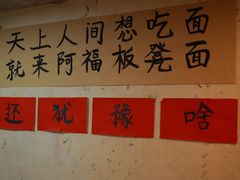 天上人间想吃面
就来阿福板凳面
还犹豫啥